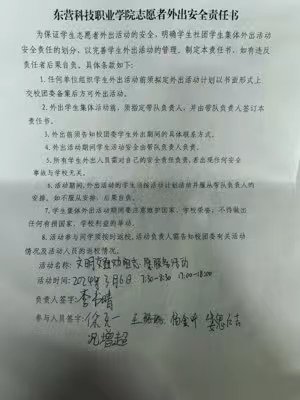 东营科技职业学院志愿者外出安全责任书
为保证学生志愿者外出活动的安全，明确学生校团学生集体外出活动
安全责任的划分，以完善学生外出活动的管理。制定本责任书，如有违反
责任者后果自负。具体条款如下：
1.任何单位组织学生外出活动前须拟定外出活动计划以书面形式上
交校团委备案后方可外出活动。
2.外出学生集体活动前，须指定带队负责人，并由带队负责人签订本
责任书。
3.外出前须告知校团委学生外出期间的具体联系方式。
4.外出活动期间学生活动安全由带队负责人负责。
5.所有学生外出人员需对自己的安全责任负责，若出现任何安全
事故与学校无关。
6.活动期间，外出活动的学生须按活动计划活动并服从带队负责人的
安排。如不服从安排，后果自负。
7.学生集体外出活动期间要注意维护国家、学校荣誉，不得做出
任何有损国家、学校利益的举动。
8.活动参与同学须按时返校，活动负责人需告知校团委有关活动
情况及活动人员的返校情况。
活动名称：文明交通劝导志愿服务活动
活动时间：2024年3月6日 7:30-8:30 17:00-18:00
负责人签字：
参与人员签字：徐 一
况增超